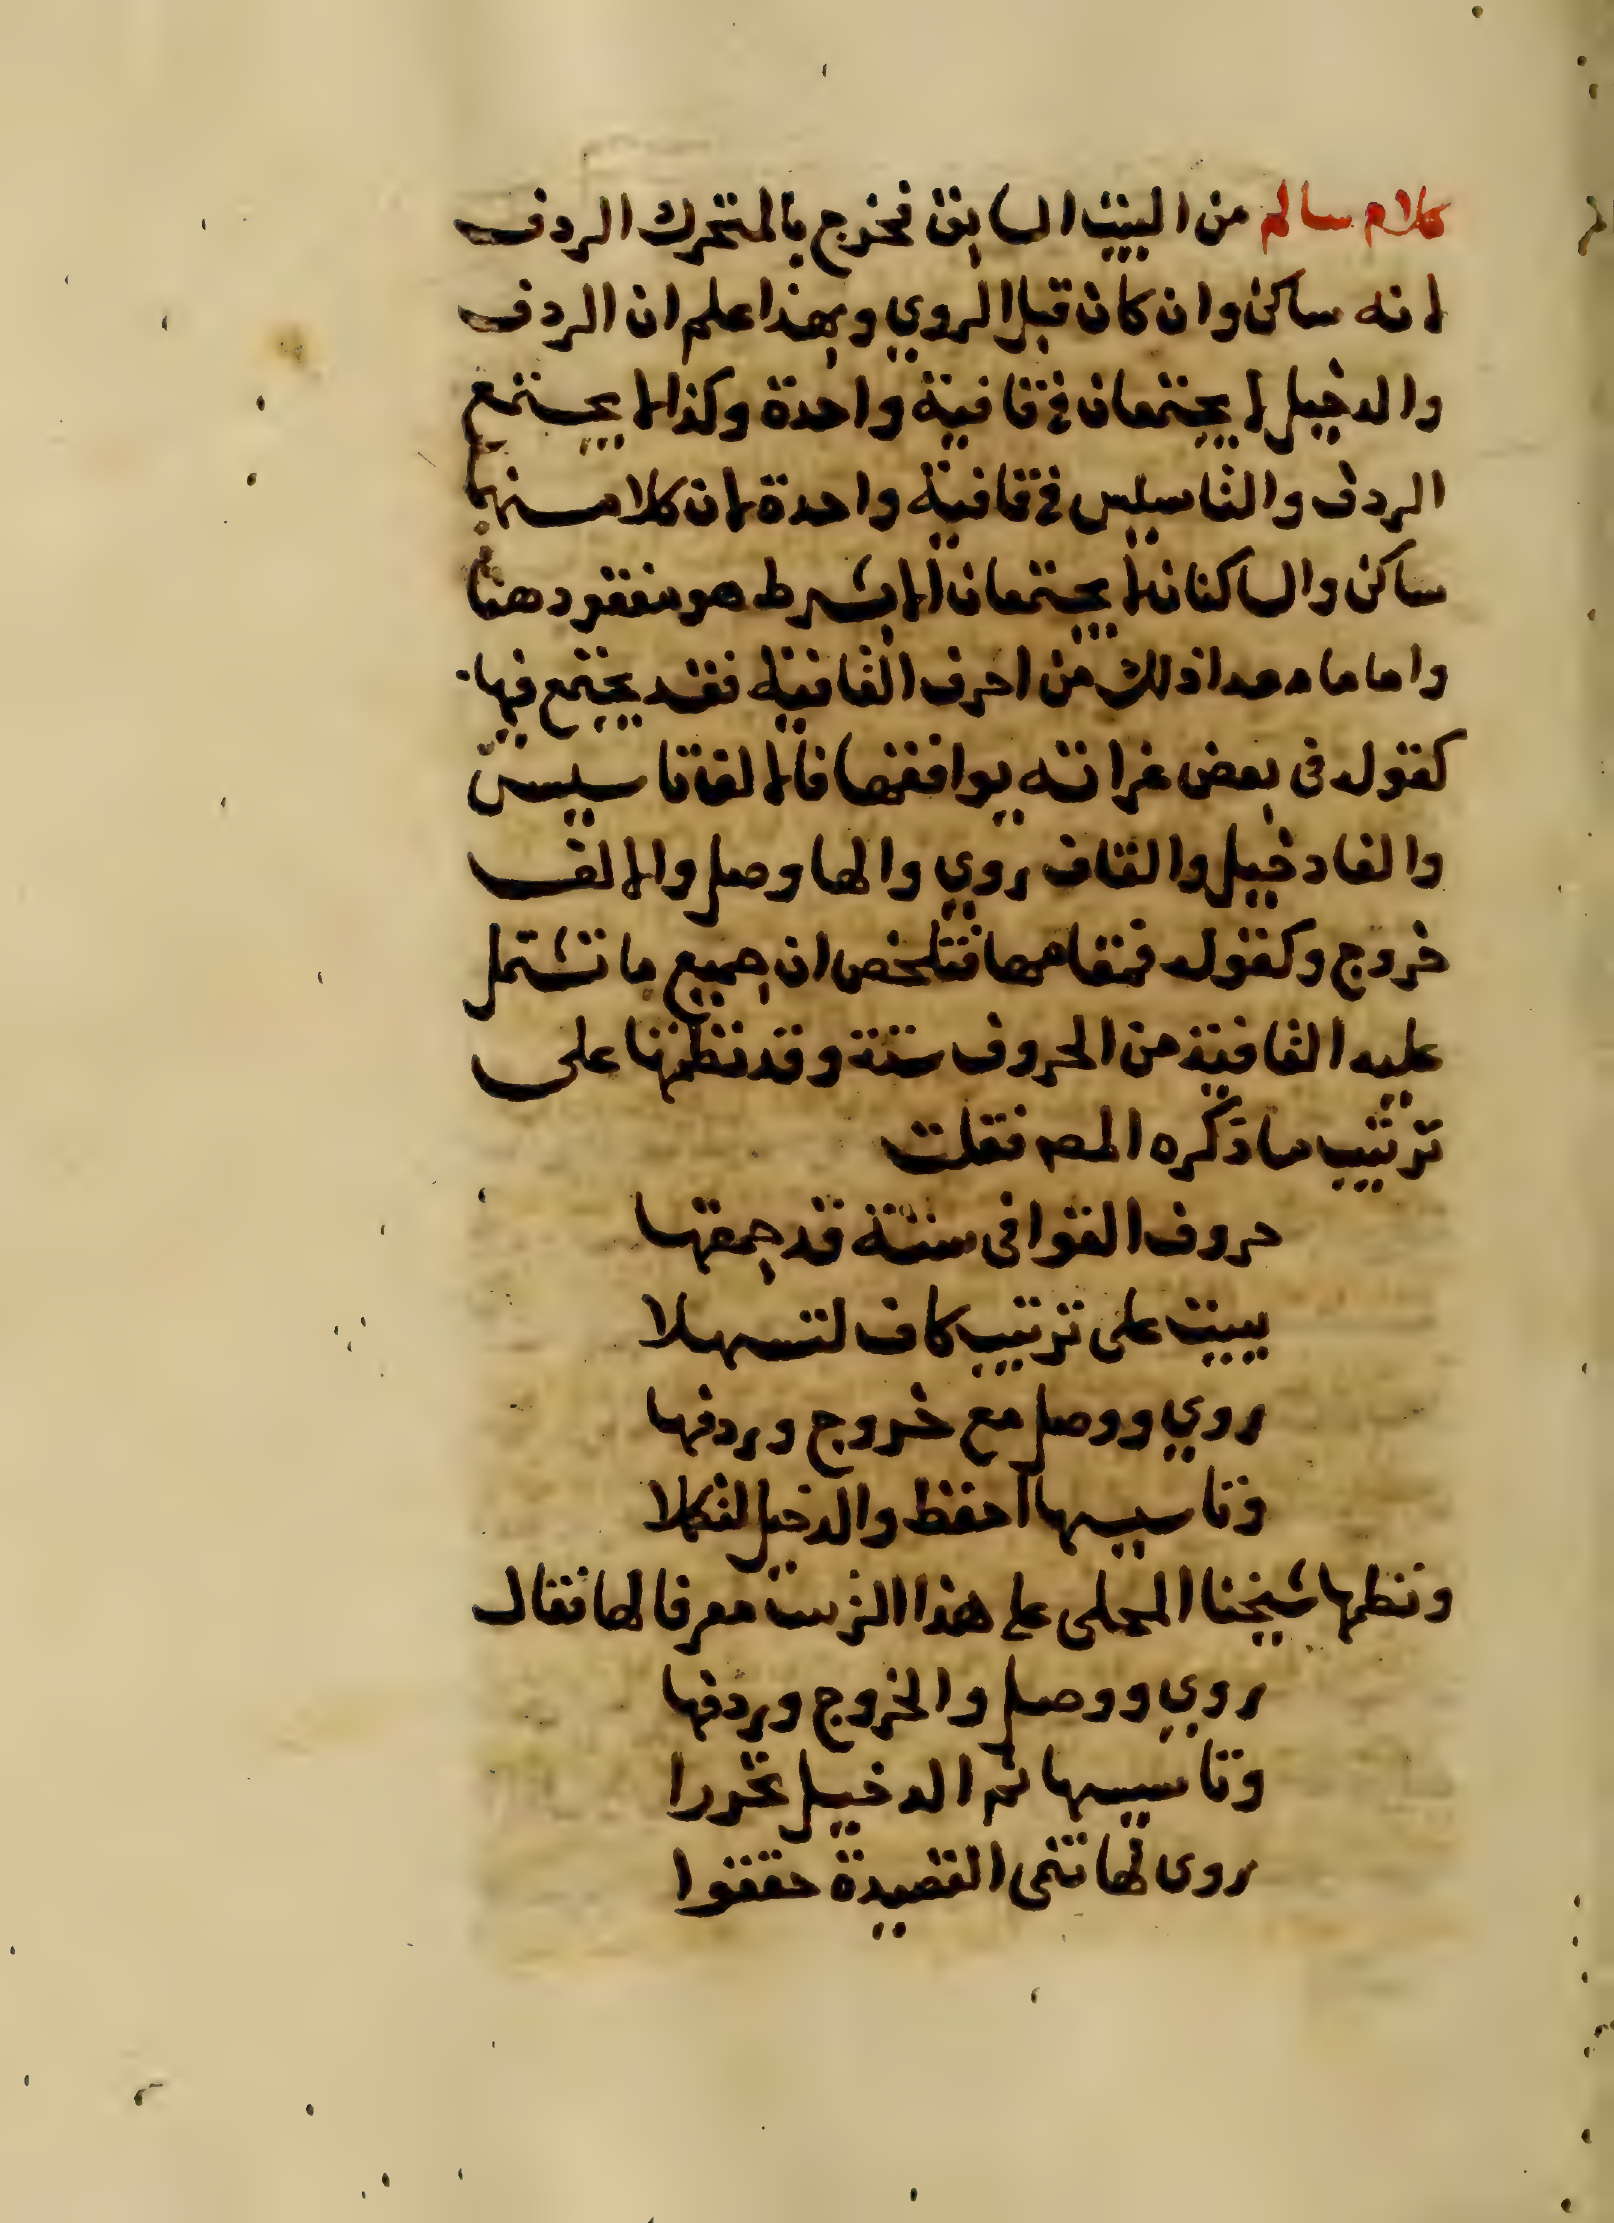 كلام سالم من البيت السابق فخرج بالمتحرك الردف
لانه ساكن وان كان قبل الروي وبهذا علم ان الردف
والدخيل لا يجتمعان في قافية واحدة وكذا لا يجتمع
الردف والتاسيس في قافية واحدة لان كلا منهما
ساكن والساكنان لا يجتمعان الا بشرط هو مفقود هنا
واما ما عدا ذلك من احرف القافية فقد يجتمع فيها
كقوله في بعض غراته يوافقها فالالف تاسيس
والفا دخيل والقاف روي والها وصل والالف
خروج وكقوله فمقامها فتلخص ان جميع ما تشتمل
عليه القافية من الحروف ستة وقد نظمتها على
ترتيب ما ذكره المص فقلت
حروف القوافي ستة قد جمعتها
ببيت على ترتيب كاف لتسهلا
روي ووصل مع خروج وردفها
وتاسيسها احفظ والدخيل لتكملا
ونظمها شيخنا المحلي على هذا الترتيب معرفا لها فقال
روي ووصل والخروج وردفها
وتاسيسها ثم الدخيل تحررا
روي لها تنمى القصيدة حققوا